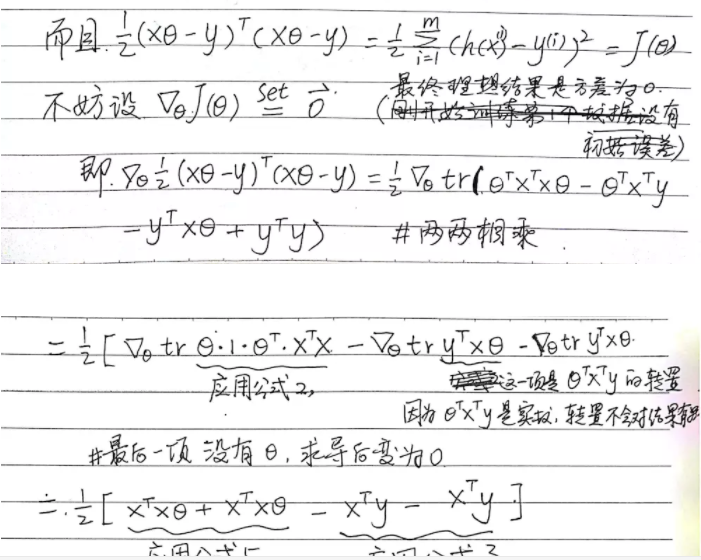 而且. ½(xθ-y)ᵀ(xθ-y) = ½ Σᵢ₌₁ᵐ (h(x⁽ⁱ⁾)-y⁽ⁱ⁾)² = J(θ)
最终理想结果是方差为0.
不妨设 ∇θJ(θ) set= 0⃗ (刚开始训练第1个数据没有
初始误差)
即. ∇θ½(xθ-y)ᵀ(xθ-y) = ½∇θ tr(θᵀxᵀxθ - θᵀxᵀy
-yᵀxθ + yᵀy) #两两相乘
= ½[∇θ tr θ·1·θᵀ·xᵀx - ∇θ tr yᵀxθ - ∇θ tr yᵀxθ.
应用公式2, 这一项是θᵀxᵀy的转置
因为θᵀxᵀy是实数,转置不会对结果有
#最后一项没有θ,求导后变为0
= ½[xᵀxθ + xᵀxθ - xᵀy - xᵀy]
应用公式